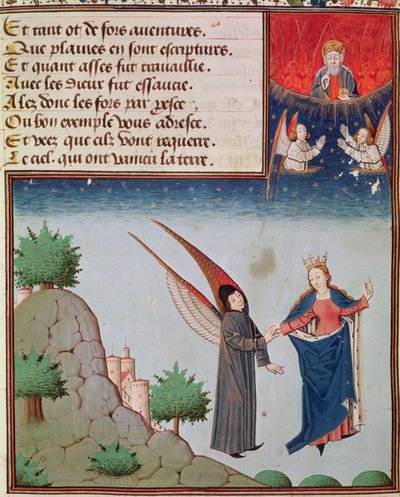 Et tant ot de fors auentures.
Que plaines en sont escriptures.
Et quant asses fut trauaillie.
Auec les dieux fut essaucie.
Alez donc les fors par xxxxx
Ou bon exemple vous adresce.
Et veez que cilz vont requerre.
Le ciel. qui ont vaincu la terre.